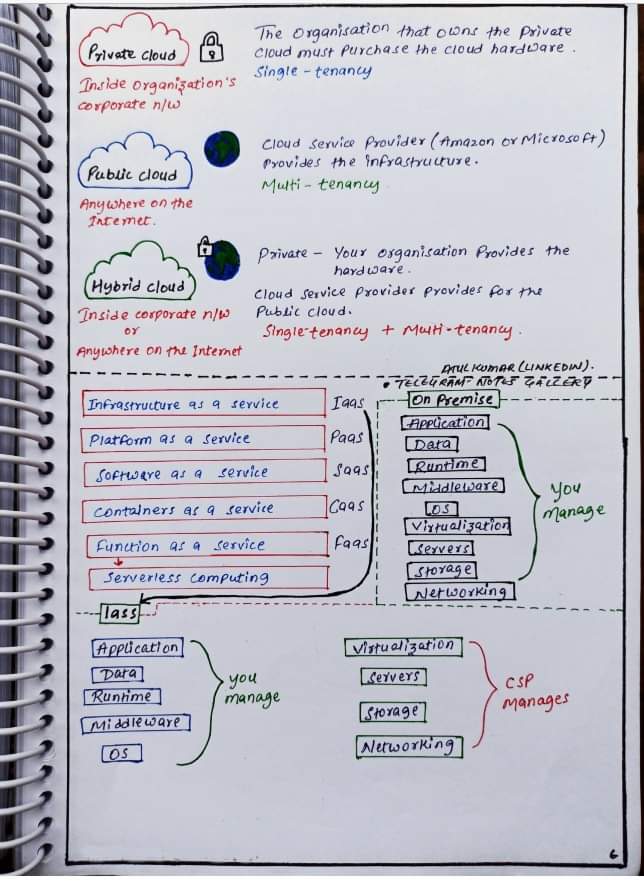 Private cloud
Inside organization's
corporate n/w
The organisation that owns the private
cloud must purchase the cloud hardware.
Single - tenancy
Public cloud
Anywhere on the
Internet.
Cloud service provider (Amazon or Microsoft)
provides the infrastructure.
Multi - tenancy
Hybrid cloud
Inside corporate n/w
or
Anywhere on the Internet
Private - Your organisation provides the
hardware.
Cloud service provider provides for the
Public cloud.
Single-tenancy + Multi-tenancy.
ATUL KUMAR (LINKEDIN).
• TELEGRAM - NOTES GALLERY
Infrastructure as a service Iaas
Platform as a service Paas
Software as a service Saas
Containers as a service Caas
Function as a service Faas
Serverless computing
On Premise
Application
Data
Runtime
Middleware
OS
Virtualization
Servers
Storage
Networking
You
manage
Iass
Application
Data
Runtime
Middleware
OS
you
manage
Virtualization
Servers
Storage
Networking
CSP
manages
6